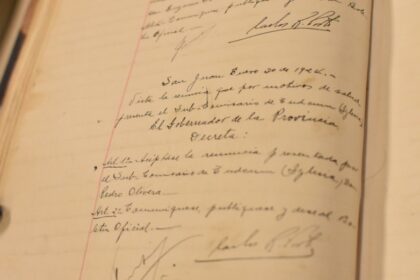 Comuníquese, publíquese y dese al Bole
tín Oficial.—
San Juan Enero 30 de 192
Vista la renuncia que por motivos de salud
presenta el Sub-Comisario de
El Gobernador de la Provincia
Decreta:
Art. 1º Acéptase la renuncia presentada por
el Sub-Comisario de (Iglesia) Don
Pedro Olivera.—
Art. 2º Comuníquese, publíquese y dese al Bo
letín Oficial.—